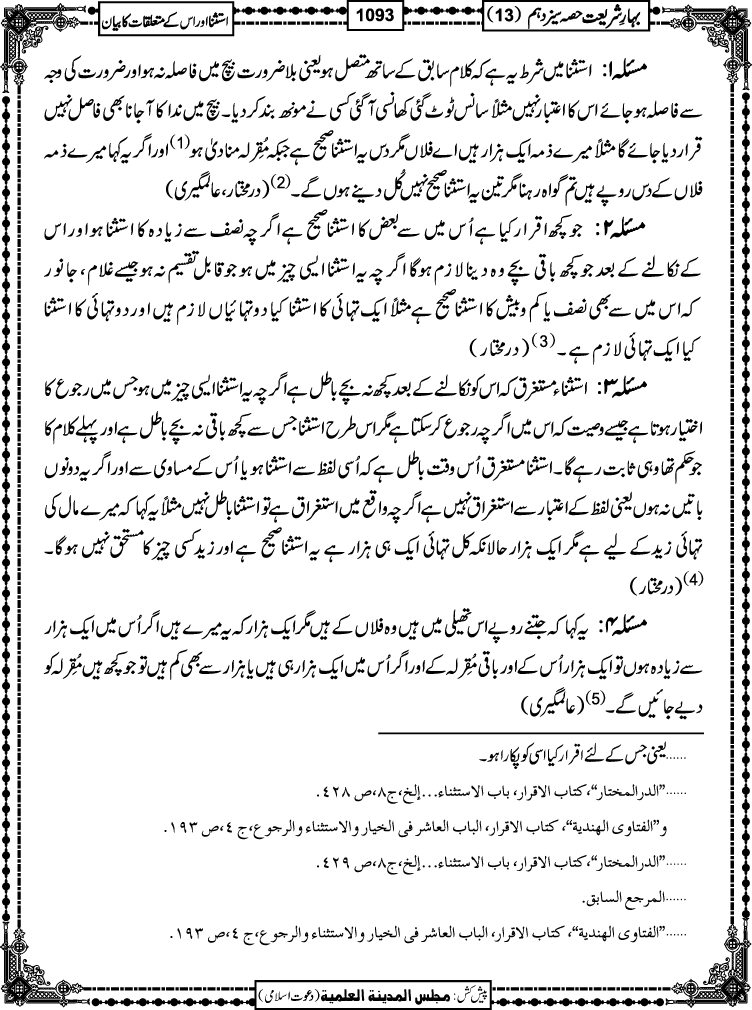 بہارِ شریعت حصہ سیزدہم (13)
1093
استثنا اور اس کے متعلقات کا بیان
مسئلہ ۱: استثنا میں شرط یہ ہے کہ کلام سابق کے ساتھ متصل ہو یعنی بلا ضرورت بیچ میں فاصلہ نہ ہو اور ضرورت کی وجہ
سے فاصلہ ہو جائے اس کا اعتبار نہیں مثلاً سانس ٹوٹ گئی کھانسی آگئی کسی نے مونھ بند کر دیا۔ بیچ میں ندا کا آجانا بھی فاصل نہیں
قرار دیا جائے گا مثلاً میرے ذمہ ایک ہزار ہیں اے فلاں مگر دس یہ استثنا صحیح ہے جبکہ مُقِر لہ منادیٰ ہو(1) اور اگر یہ کہا میرے ذمہ
فلاں کے دس روپے ہیں تم گواہ رہنا مگر تین یہ استثنا صحیح نہیں کُل دینے ہوں گے۔(2) (درمختار، عالمگیری)
مسئلہ ۲: جو کچھ اقرار کیا ہے اُس میں سے بعض کا استثنا صحیح ہے اگرچہ نصف سے زیادہ کا استثنا ہو اور اس
کے نکالنے کے بعد جو کچھ باقی بچے وہ دینا لازم ہوگا اگرچہ یہ استثنا ایسی چیز میں ہو جو قابل تقسیم نہ ہو جیسے غلام، جانور
کہ اس میں سے بھی نصف یا کم و بیش کا استثنا صحیح ہے مثلاً ایک تہائی کا استثنا کیا دو تہائیاں لازم ہیں اور دو تہائی کا استثنا
کیا ایک تہائی لازم ہے۔(3) (درمختار)
مسئلہ ۳: استثناء مستغرق کہ اس کو نکالنے کے بعد کچھ نہ بچے باطل ہے اگرچہ یہ استثنا ایسی چیز میں ہو جس میں رجوع کا
اختیار ہوتا ہے جیسے وصیت کہ اس میں اگرچہ رجوع کرسکتا ہے مگر اس طرح استثنا جس سے کچھ باقی نہ بچے باطل ہے اور پہلے کلام کا
جو حکم تھا وہی ثابت رہے گا۔ استثنا مستغرق اُس وقت باطل ہے کہ اُسی لفظ سے استثنا ہو یا اُس کے مساوی سے اور اگر یہ دونوں
باتیں نہ ہوں یعنی لفظ کے اعتبار سے استغراق نہیں ہے اگرچہ واقع میں استغراق ہے تو استثنا باطل نہیں مثلاً یہ کہا کہ میرے مال کی
تہائی زید کے لیے ہے مگر ایک ہزار حالانکہ کل تہائی ایک ہی ہزار ہے یہ استثنا صحیح ہے اور زید کسی چیز کا مستحق نہیں ہوگا۔
(4) (درمختار)
مسئلہ ۴: یہ کہا کہ جتنے روپے اس تھیلی میں ہیں وہ فلاں کے ہیں مگر ایک ہزار کہ یہ میرے ہیں اگر اُس میں ایک ہزار
سے زیادہ ہوں تو ایک ہزار اُس کے اور باقی مُقِر لہ کے اور اگر اُس میں ایک ہزار ہی ہیں یا ہزار سے بھی کم ہیں تو جو کچھ ہیں مُقِر لہ کو
دیے جائیں گے۔(5) (عالمگیری)
......یعنی جس کے لئے اقرار کیا اسی کو پکارا ہو۔
......”الدرالمختار“، کتاب الاقرار، باب الاستثناء...إلخ، ج۸، ص ٤٢٨.
و”الفتاوی الهندیة“، کتاب الاقرار، الباب العاشر فی الخیار والاستثناء والرجوع، ج٤، ص ١٩٣.
......”الدرالمختار“، کتاب الاقرار، باب الاستثناء...إلخ، ج۸، ص ٤٢٩.
......المرجع السابق.
......”الفتاوی الهندیة“، کتاب الاقرار، الباب العاشر فی الخیار والاستثناء والرجوع، ج٤، ص ١٩٣.
پیش کش: مجلس المدینۃ العلمیۃ (دعوت اسلامی)